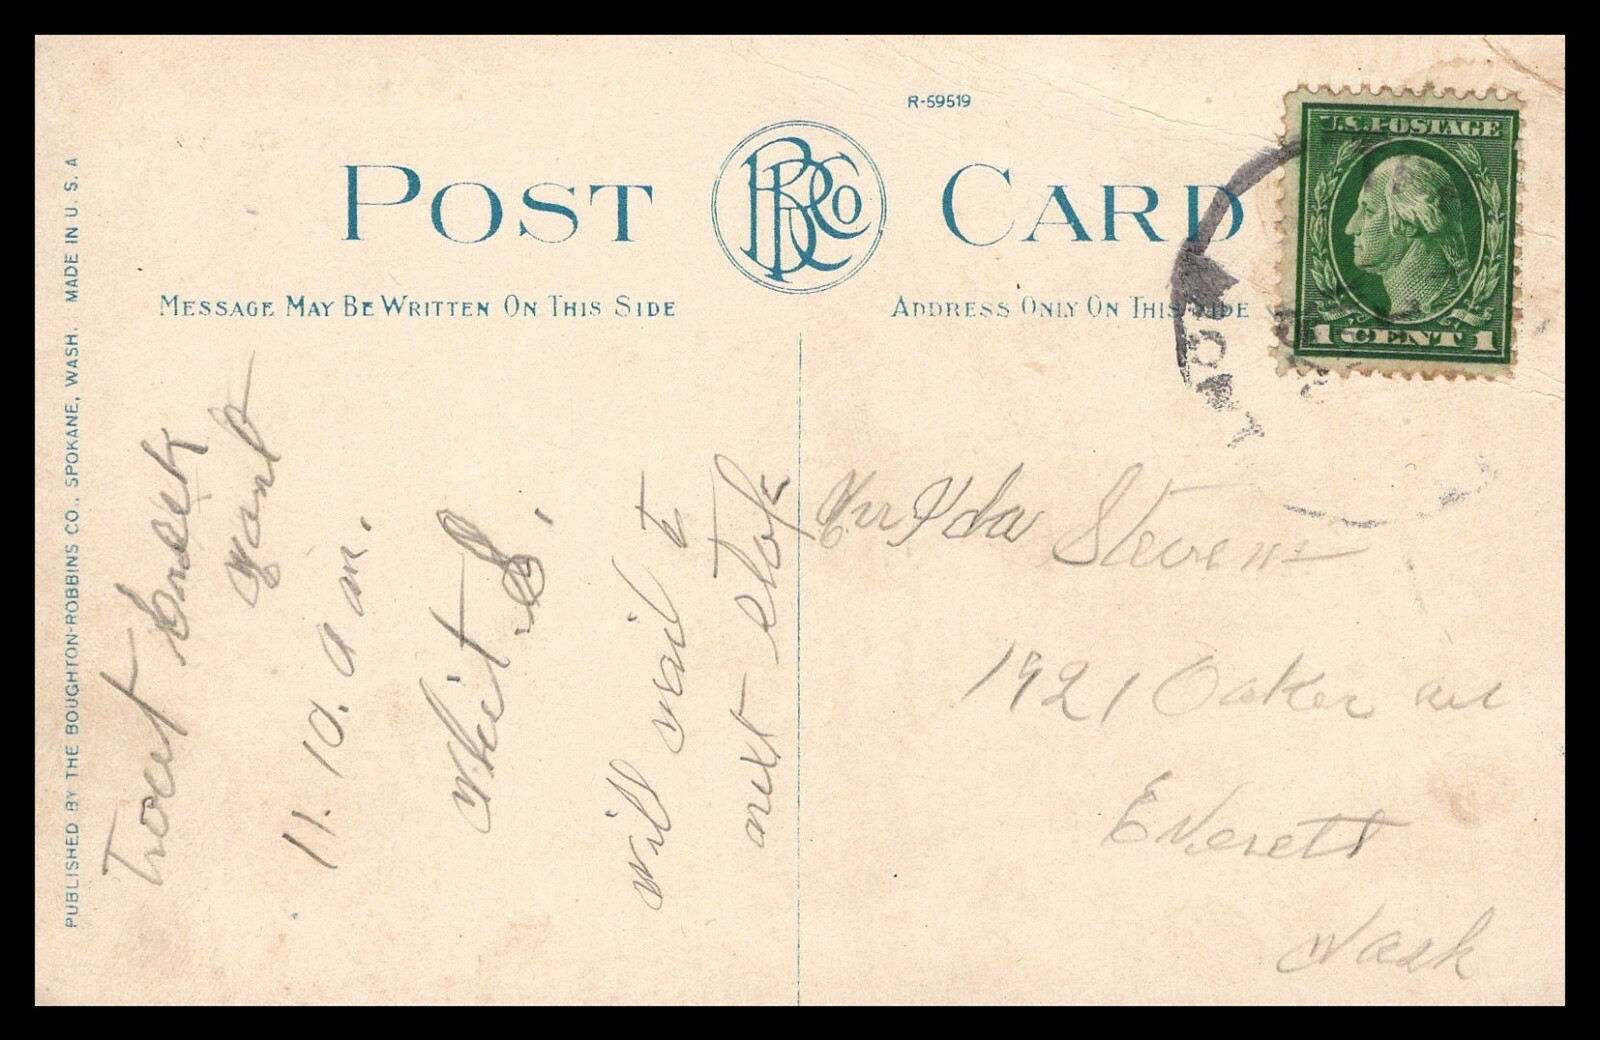 R-59519
POST CARD
BRCo
MESSAGE MAY BE WRITTEN ON THIS SIDE
ADDRESS ONLY ON THIS SIDE
U.S. POSTAGE
1 CENT 1
PUBLISHED BY THE BOUGHTON-ROBBINS CO., SPOKANE, WASH. MADE IN U. S. A
Trout Creek
Mont
11. 10. a m.
will mail
next stop
Ida Stevens
1921 Oakes ave
Everett
Wash